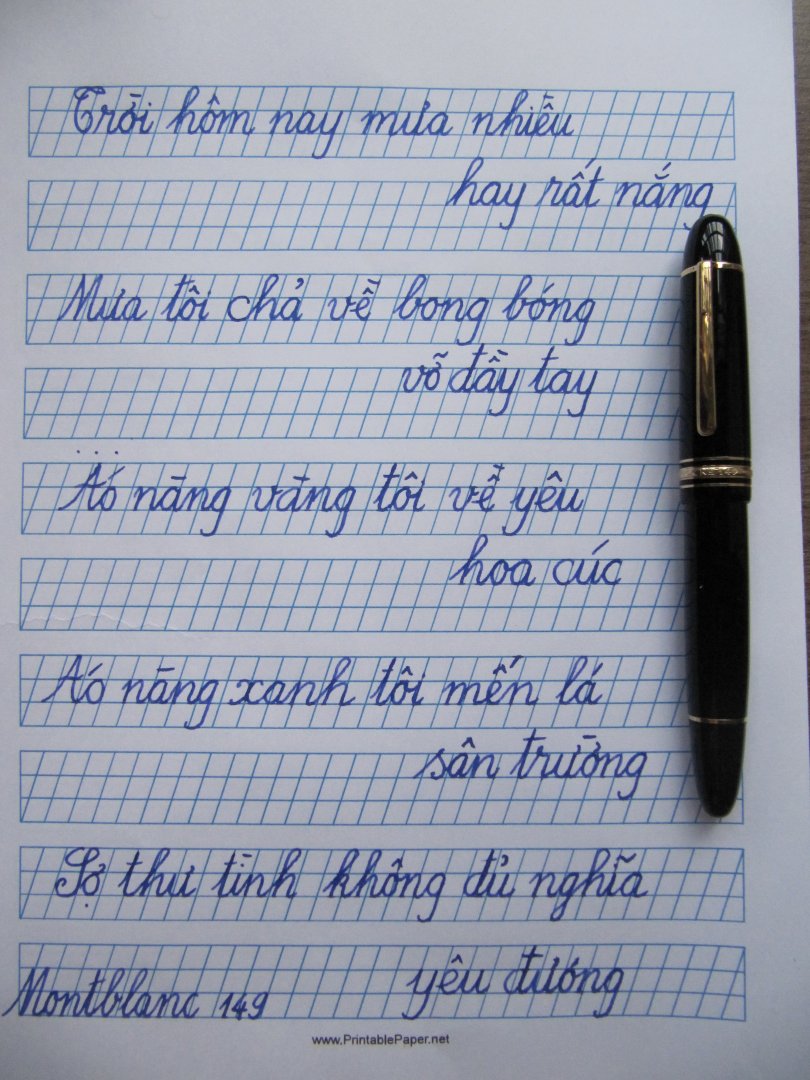 Trời hôm nay mưa nhiều
hay rất nắng
Mưa tôi chả về bong bóng
vỡ đầy tay
...
Áo nàng vàng tôi về yêu
hoa cúc
Áo nàng xanh tôi mến lá
sân trường
Sợ thư tình không đủ nghĩa
yêu đương
Montblanc 149
www.PrintablePaper.net